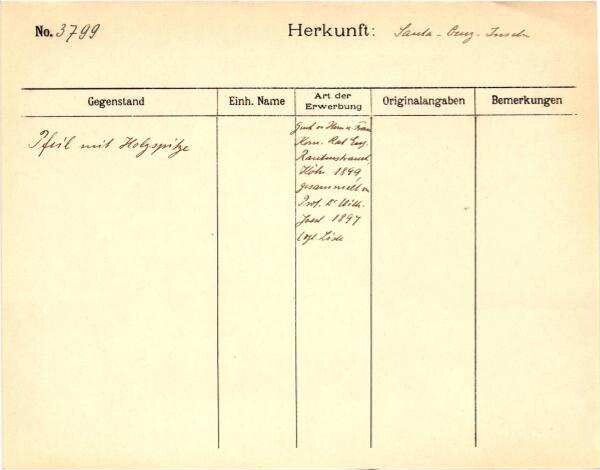 No. 3799 Herkunft: Santa-Cruz-Inseln
Gegenstand Einh. Name Art der Erwerbung Originalangaben Bemerkungen
Pfeil mit Holzspitze
Gesch. v. Herrn u. Frau
Kom. Rat Eug.
Rautenstrauch
Köln 1899,
gesammelt v.
Prof. Dr Wilh.
Joest 1897